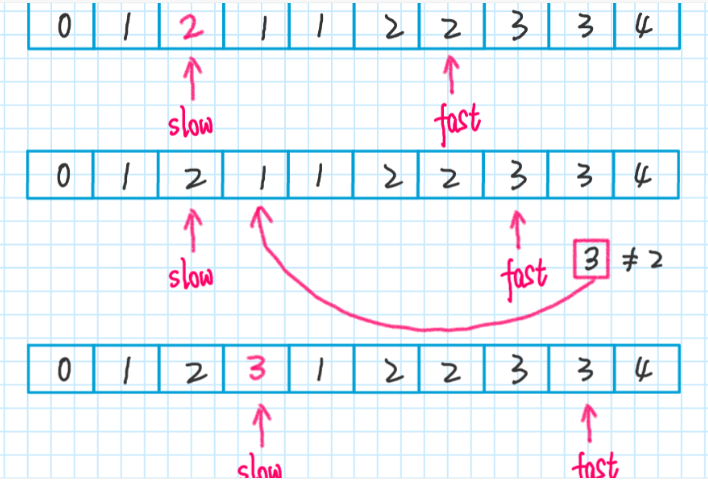 0 1 2 1 1 2 2 3 3 4
slow fast
0 1 2 1 1 2 2 3 3 4
slow fast 3 ≠ 2
0 1 2 3 1 2 2 3 3 4
slow fast